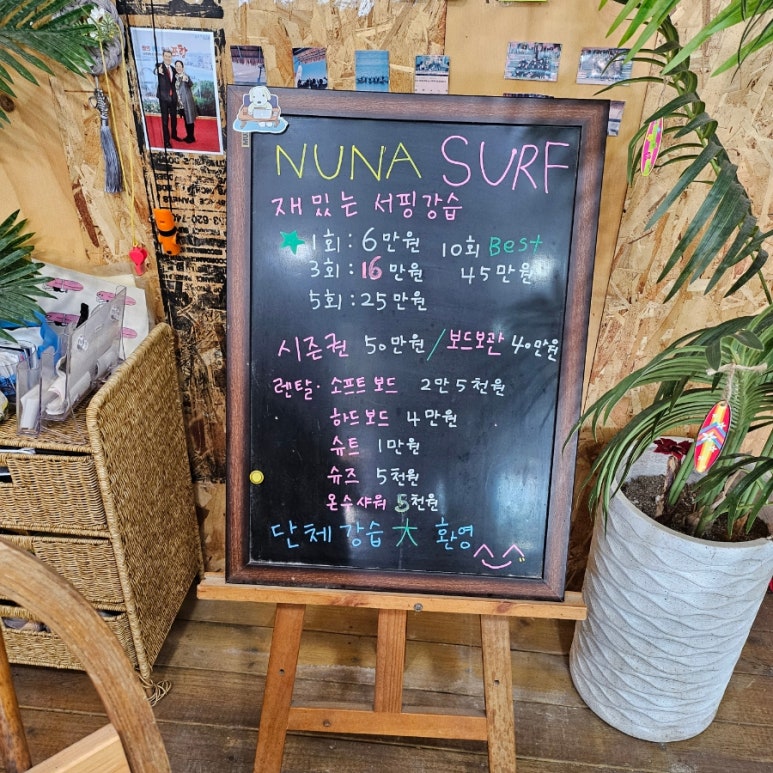 NUNA SURF
재밌는 서핑강습
1회 : 6만원 10회 Best
3회 : 16만원 45만원
5회 : 25만원
시즌권 50만원 / 보드보관 40만원
렌탈. 소프트보드 2만5천원
하드보드 4만원
슈트 1만원
슈즈 5천원
온수샤워 5천원
단체강습 大 환영